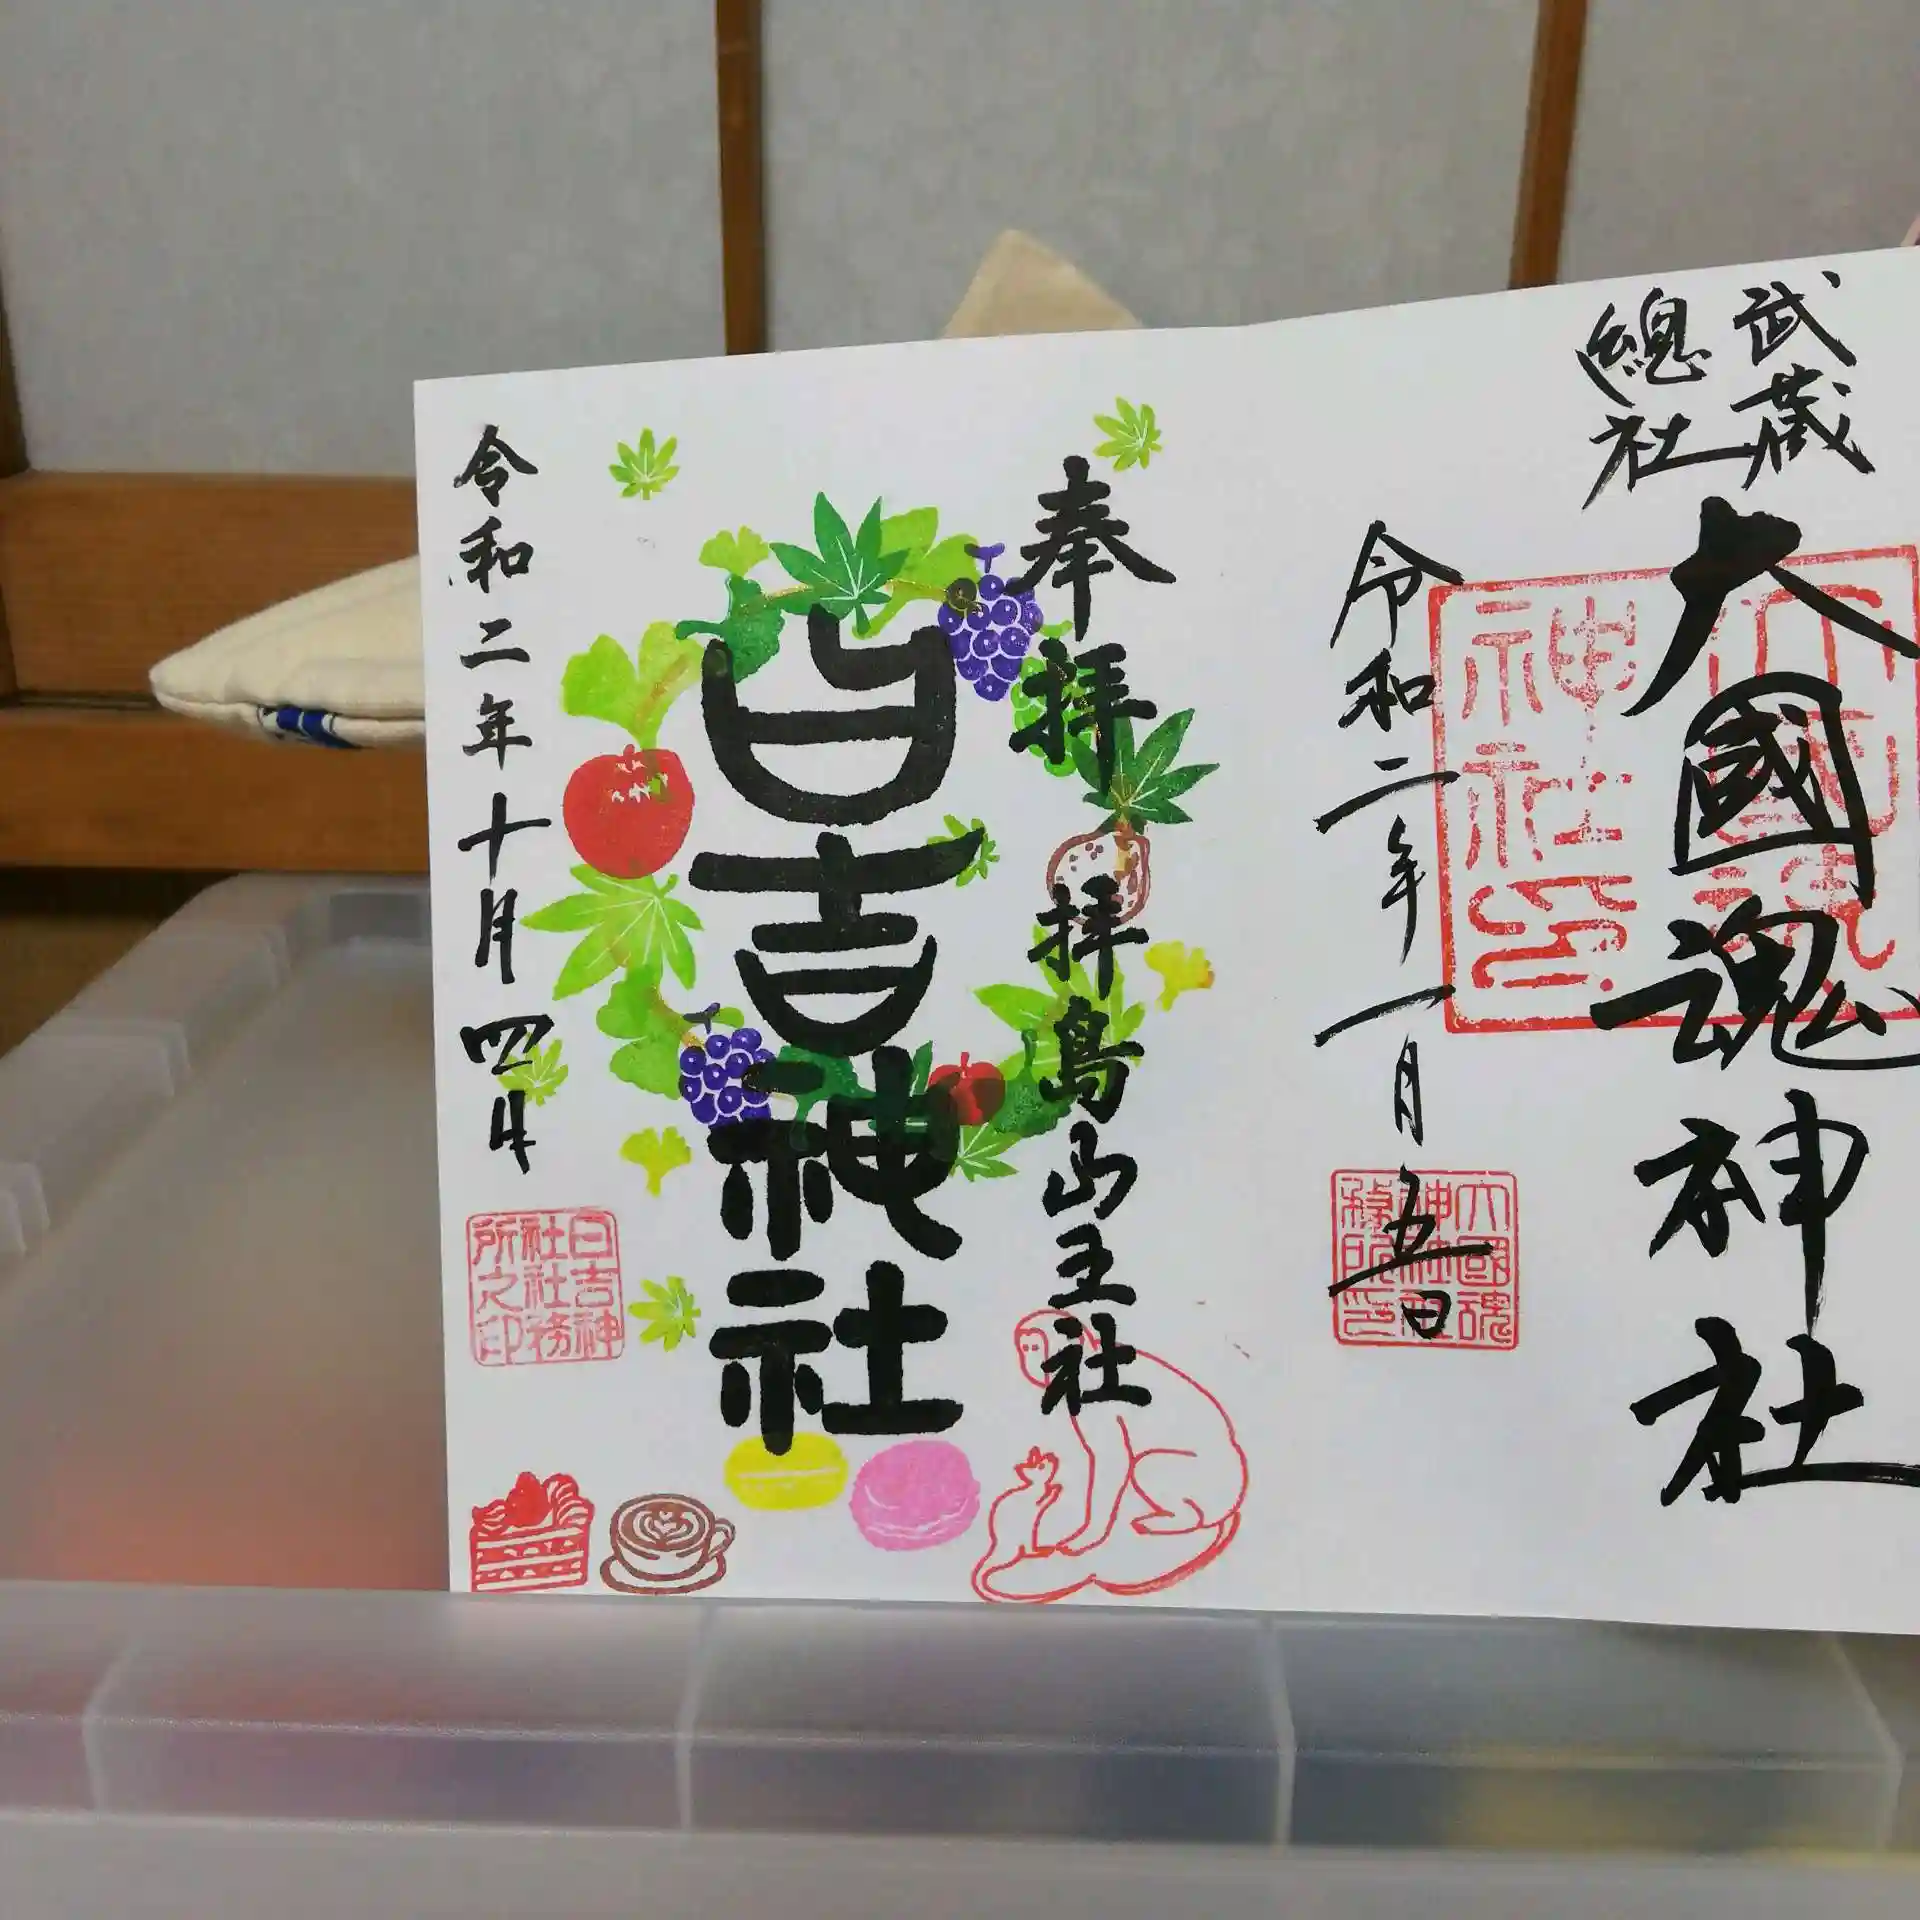 武蔵
總社
大國魂神社
令和二年一月五日
大國魂
神社印
大國魂
神社社
務所印
奉拝
拝島山王社
日吉神社
令和二年十月四日
日吉神
社社務
所之印